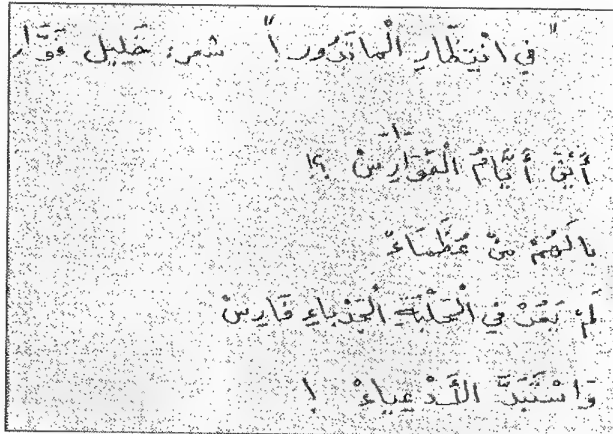 "في انْتِظَارِ الْمَاتَدُورا" شعر: خليل عوَّار
-١-
أَيْنَ أَيَّامُ الْفَوَارِسْ ؟!
يالَهُمْ مِنْ عُظَمَاءْ
لَمْ يَعُدْ فِي الْحَلْبَةِ الْجَدْباءِ فَارِسْ
وَاسْتَبَدَّ الأَدْعِياءْ !